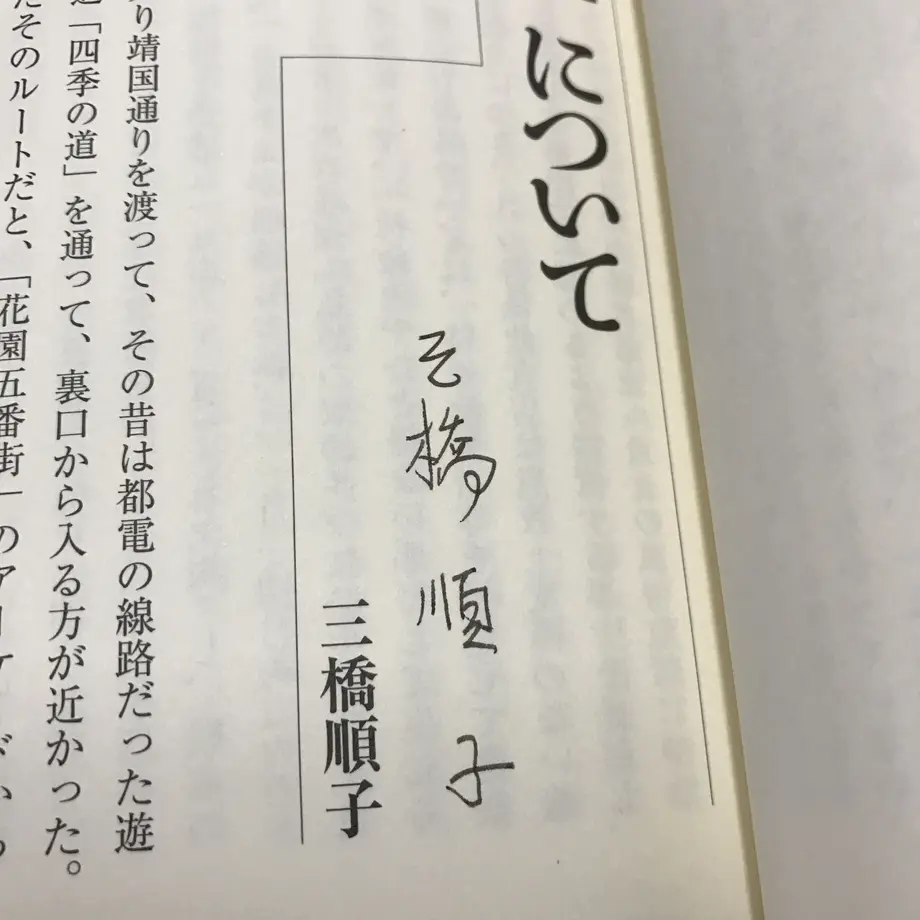 について
三橋順子
三橋順子
り靖国通りを渡って、その昔は都電の線路だった遊
「四季の道」を通って、裏口から入る方が近かった。
だそのルートだと、「花園五番街」のアーケードから